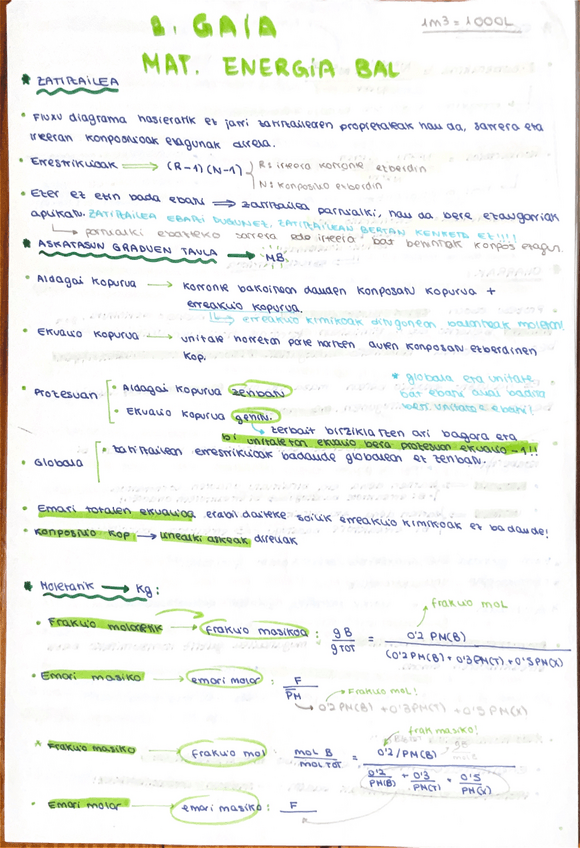 B. GAIA
1m3 = 1000L
MAT. ENERGIA BAL
* ZATITZAILEA
• Fluxu diagrama hasieratik ez jarri zatitzailearen propietateak hau da, sarrera eta
irteeran konposizioak ezagunak direla.
• Errestrikzioak ⟹ (R-1)(N-1) { R: irteera korronte ezberdin
N: konposatu ezberdin
• Ezer ez ezin bada ebatzi ⟹ zatitzailea partzialki, hau da bere ezaugarriak
aplikatu. ZATITZAILEA EBATZI DUGUNEZ, ZATITZAILEAN BERTAN KENKETA EZ!!!!
↳ partzialki ebazteko sarrera edo irteera bat behintzat konpos ezagun.
* ASKATASUN GRADUEN TAULA → M.B.
• Aldagai kopurua → korronte bakoitzean dauden konposatu kopurua +
erreakzio kopurua.
↳ erreakzio kimikoak ditugunean balantzeak moletan!
• Ekuazio kopurua → unitate horretan parte hartzen duten konposatu ezberdinen
kop.
* globala eta unitate
bat ebatzi ahal badira
berr. unitatea ebatzi!
• Prozesuan [ • Aldagai kopurua zenbatu
• Ekuazio kopurua gehitu.
↳ zerbait birziklatzen ari bagara eta
bi unitatetan ekuazio bera prozesuan ekuazio -1!!
• Globala [ • zatitzailean errestrikzioak badaude globalean ez zenbatu.
• Emari totalen ekuazioa erabil daiteke soilik erreakzio kimikoak ez badaude!
• konposizio kop → linealki askeak direnak
* Moletatik → Kg:
frakzio mol
• Frakzio molarretik → frakzio masikoa : gB / gTOT = 0'2 PM(B) / (0'2 PM(B) + 0'3 PM(T) + 0'5 PM(X)
• Emari masiko → emari molar : F / PM
→ Frakzio mol!
↳ 0'2 PM(B) + 0'3 PM(T) + 0'5 PM(X)
frak masiko!
* Frakzio masiko → frakzio mol : mol B / mol TOT = 0'2 / PM(B) / 0'2/PM(B) + 0'3/PM(T) + 0'5/PM(X)
• Emari molar → emari masiko : F